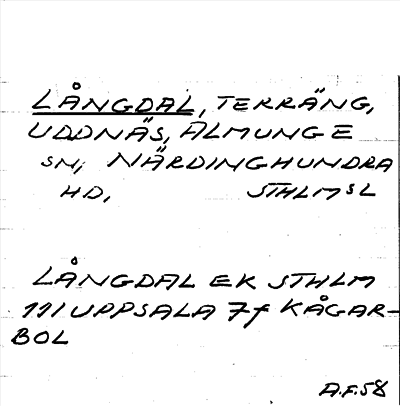 LÅNGDAL, TERRÄNG,
UDDNÄS, ALMUNGE
SN, NÄRDINGHUNDRA
HD, STHLMSL
LÅNGDAL EK STHLM
111 UPPSALA 7f KÅGAR-
BOL
A.F.58